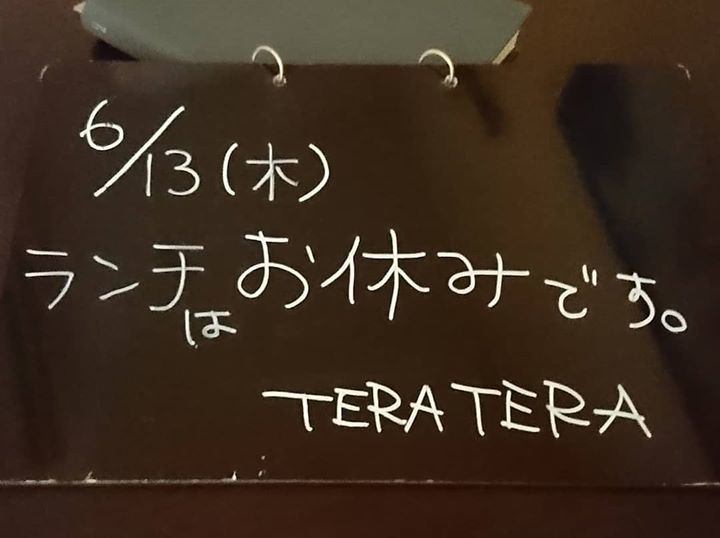 6/13(木)
ランチはお休みです。
TERA TERA